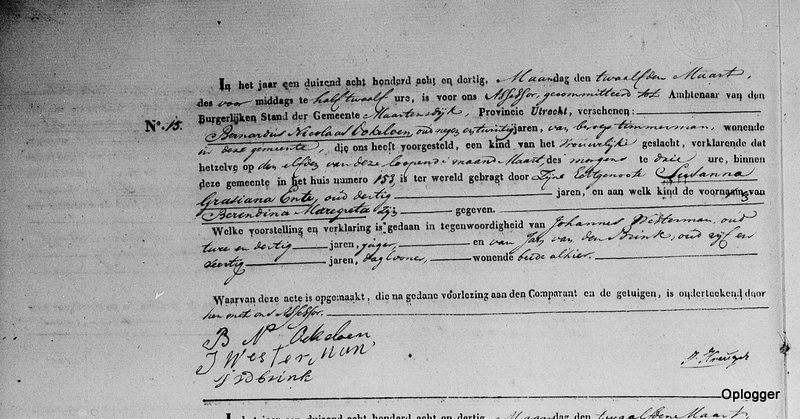 In het jaar een duizend acht honderd acht en dertig, Maandag den twaalfden Maart,
des voor middags te half twaalf ure, is voor ons Assessor, gecommitteerd tot Ambtenaar van den
Burgerlijken Stand der Gemeente Maartensdijk, Provincie Utrecht, verschenen:
No. 15.
Bernardus Nicolaas Ockeloen, oud negen en twintig jaren, van beroep timmerman, wonende
in deze gemeente, die ons heeft voorgesteld, een kind van het Vrouwelijke geslacht, verklarende dat
hetzelve op den elfden van deze loopende maand Maart, des morgens te drie ure, binnen
deze gemeente in het huis numero 153, is ter wereld gebragt door Zijne Echtgenoote Susanna
Grasiana Ente, oud dertig jaren, en aan welk kind de voornamen van
Berendina Margreta zijn gegeven.
Welke voorstelling en verklaring is gedaan in tegenwoordigheid van Johannes Westerman, oud
twee en dertig jaren, en van Jan van den Brink, oud vijf en
veertig jaren, dagloner, wonende beide alhier.
Waarvan deze acte is opgemaakt, die na gedane voorlezing aan den Comparant en de getuigen, is onderteekend door
hen met ons Assessor.
B N Ockeloen
J Westerman
Brink
Oplogger
In het jaar een duizend acht honderd acht en dertig, Maandag den twaalfden Maart